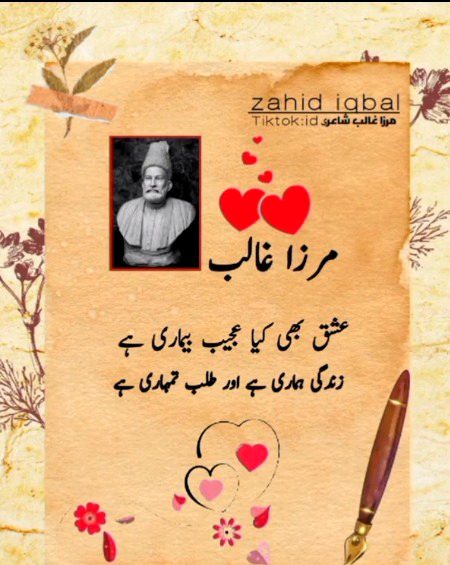 zahid iqbal
Tiktok:id مرزا غالب شاعری
مرزا غالب
عشق بھی کیا عجیب بیماری ہے
زندگی ہماری ہے اور طلب تمہاری ہے